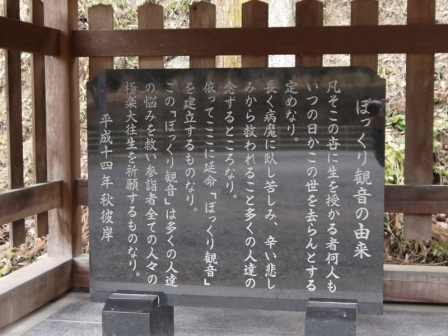 ぽっくり観音の由来
凡そこの杳に生を授かる者何人も
いつの日かこの世を去らんとする
定めなり。
長く病魔に臥し苦しみ、辛い悲し
みから救われること多くの人達の
念ずるところなり。
依ってここに延命「ぽっくり観音」
を建立するものなり。
この「ぽっくり観音」は多くの人達
の悩みを救い参詣者全ての人々の
極楽大往生を祈願するものなり。
平成十四年秋彼岸